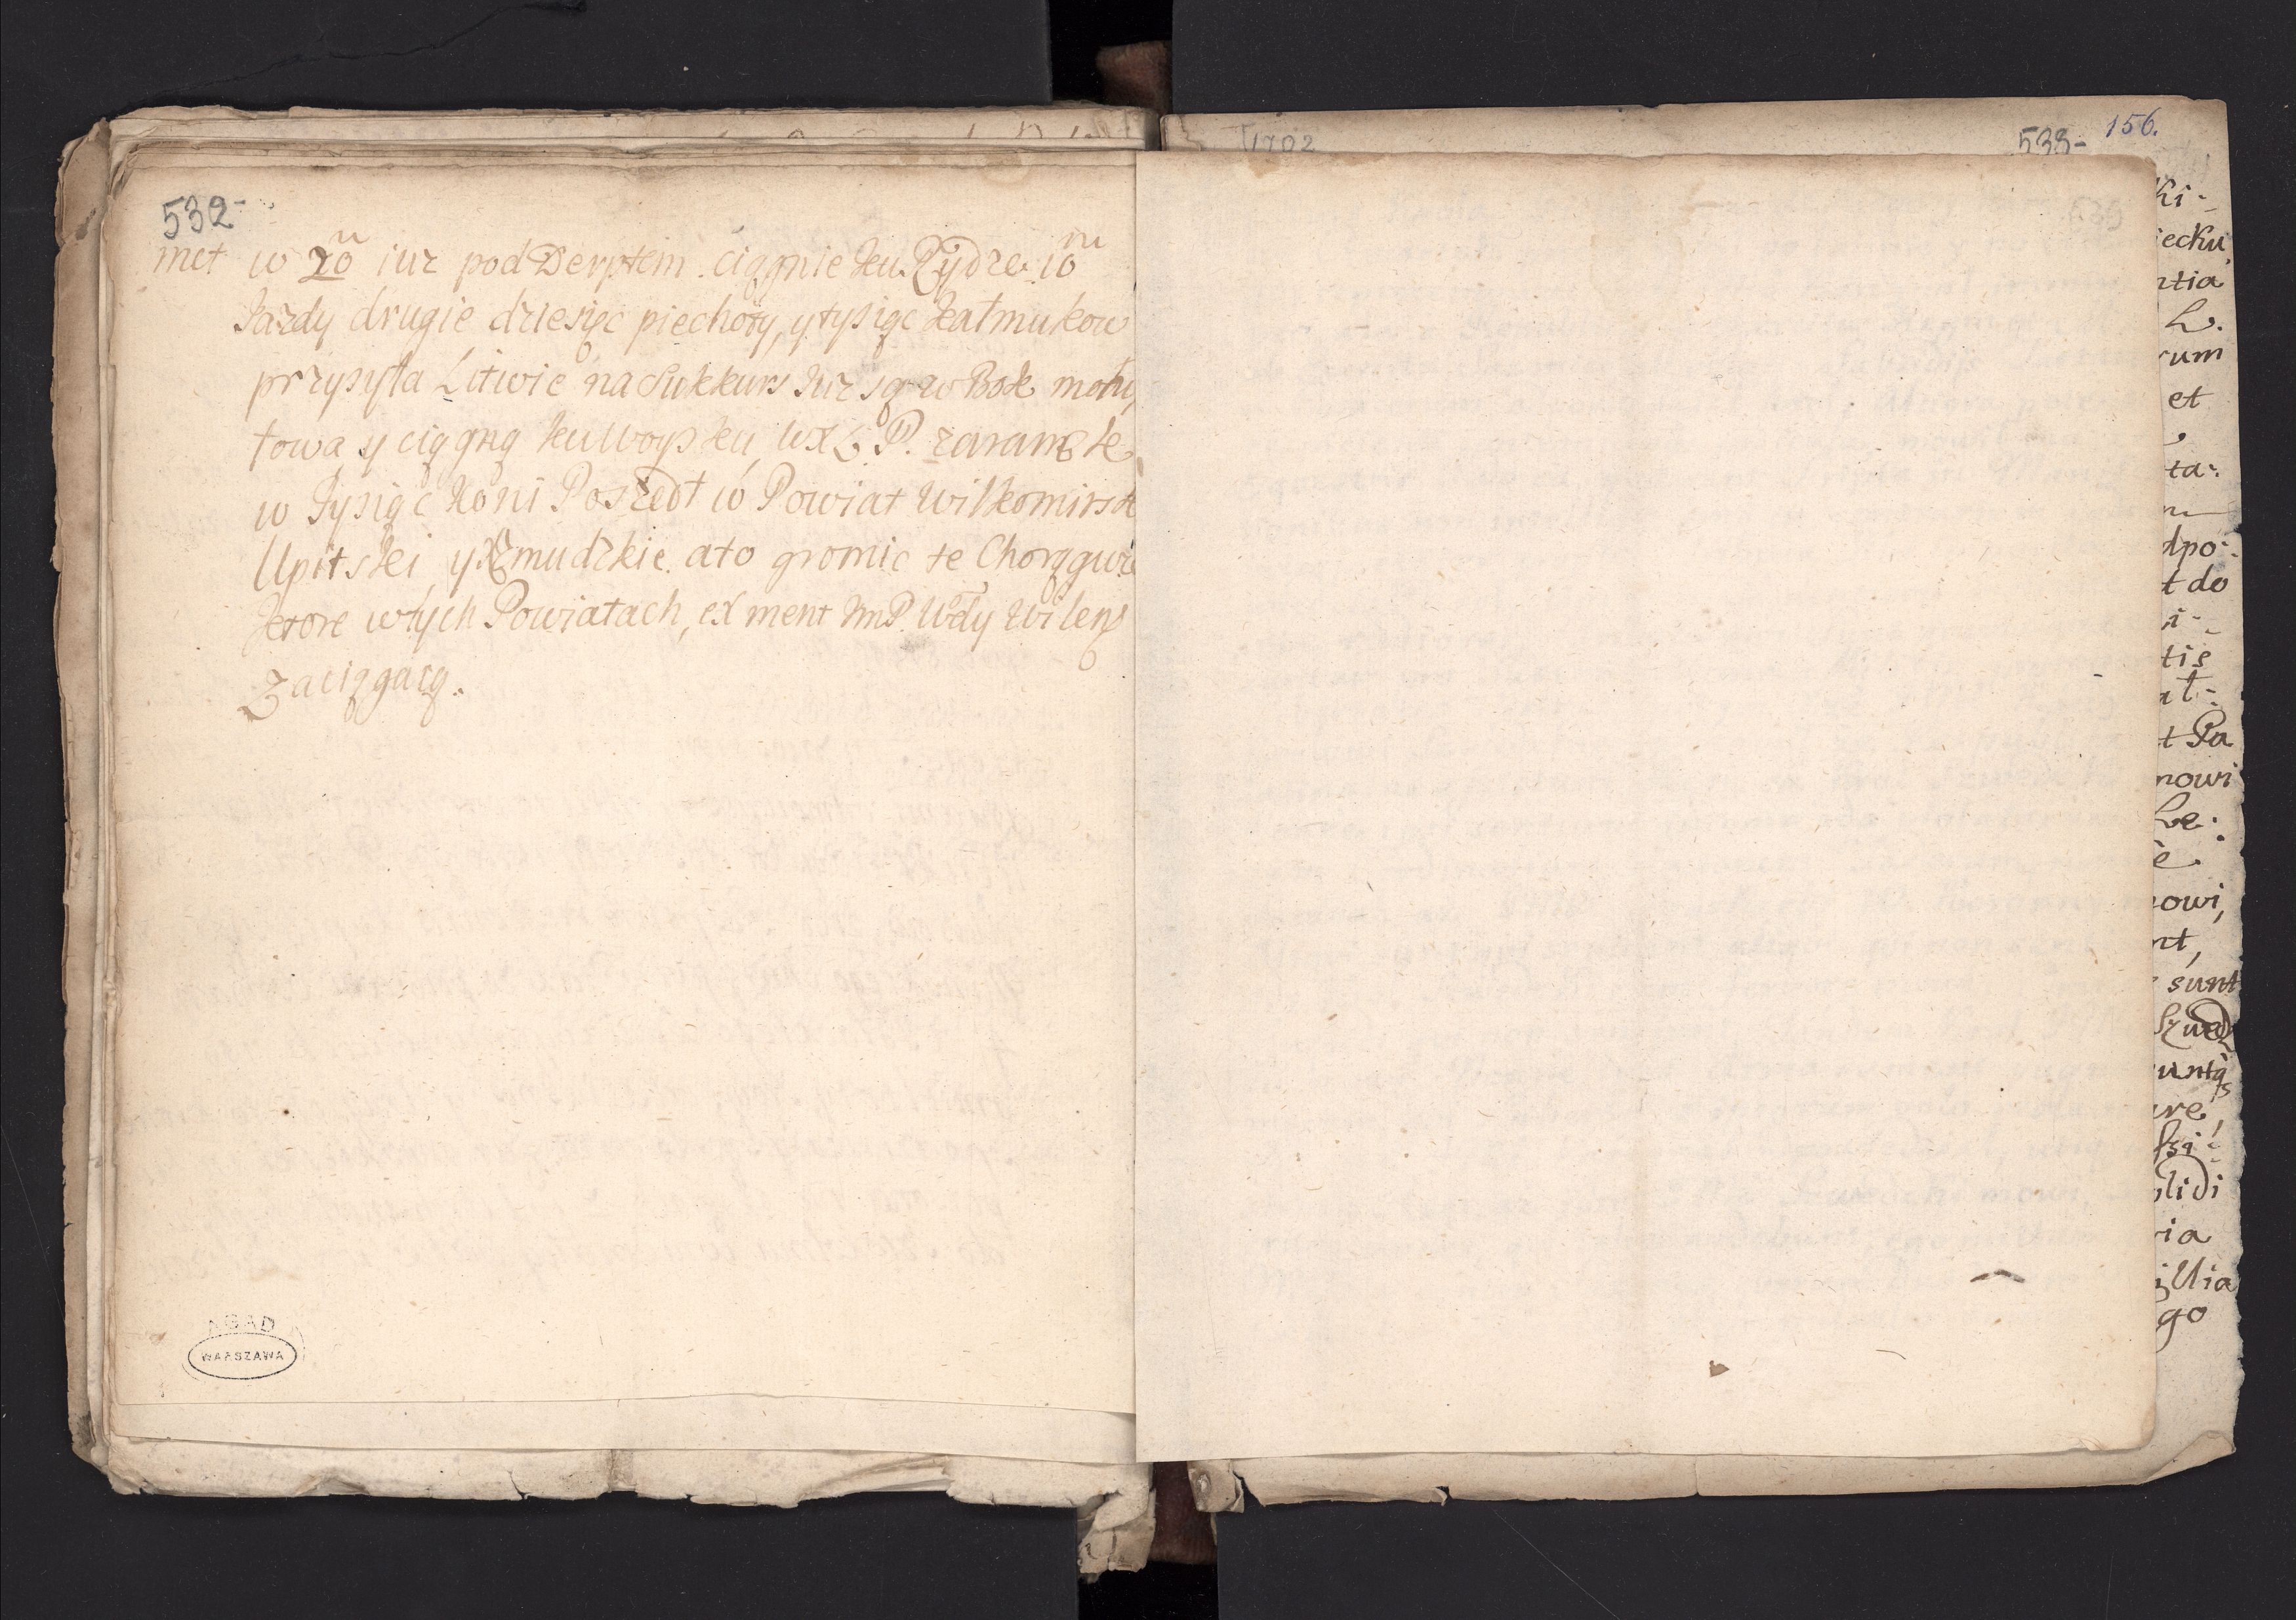 532-
met w 20 m iuz pod Derptem ciągnie ku Rydze 10 m
Jazdy drugie dziesięc piechoty, y tysiąc Kałmukow
przysyła Litwie na Sukkurs Juz są w Bok
y ciągną ku woysku WXL P.
w Tysiąc Koni Poszedł w Powiat Wilkomirsk
Upitski y Xzmudzkie ato gromic te Chorągwie
ktore wtych Powiatach, ex ment JmP. Wdy Wilens
zaciągaią.
AGAD
WARSZAWA
1702
533-
156.
ki-
iecku,
ntia
L.
rum
et
ta:
dpo:
t do
i-
tis
at-
t Pa
nowi
Le:
e
owi,
nt,
sunt
Szwed
untq
are,
ssi:
lidi
ia
illia
go